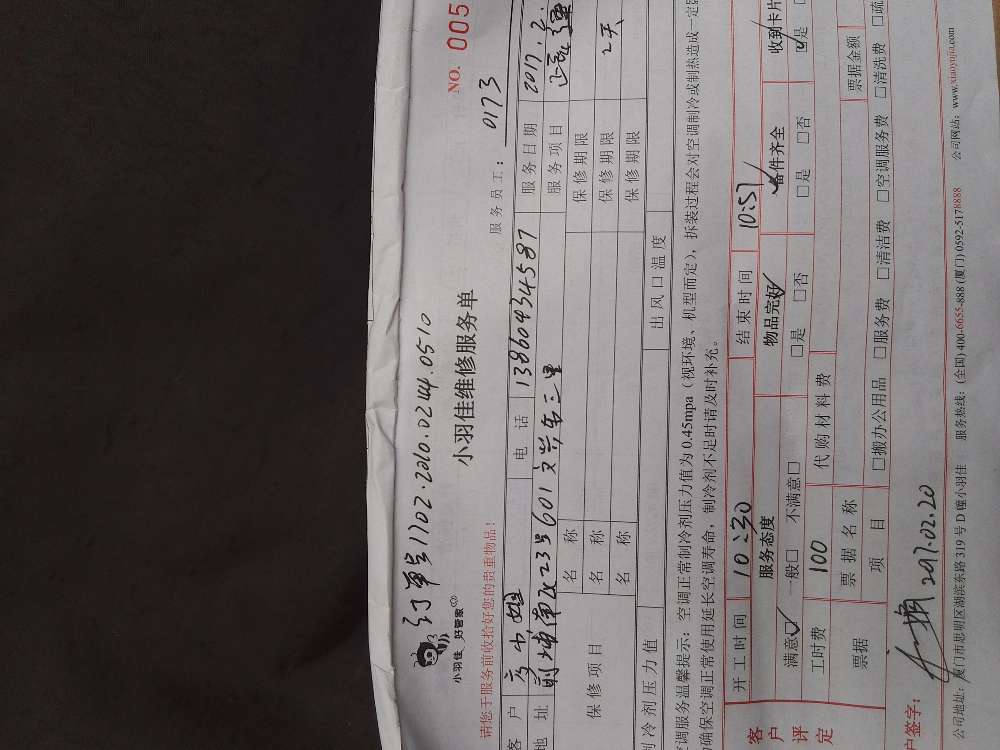 订单号1702.2010.0244.0510
小羽佳 好管家
小羽佳维修服务单
NO. 005
请您于服务前收拾好您的贵重物品!
服务员工: 0173
客 户 电 话 13860434587 服务日期 2017.2.
地 址 前埔南区23号601 服务项目
保修项目
名 称 保修期限
名 称 保修期限 2天
名 称 保修期限
制冷剂压力值 出风口温度
空调服务温馨提示:空调正常制冷剂压力值为0.45mpa(视环境、机型而定),拆装过程会对空调制冷或制热造成一定
为确保空调正常使用延长空调寿命,制冷剂不足时请及时补充。
开工时间 10:30 结束时间 10:57
客户评定
服务态度 物品完好 备件齐全 收到卡片
满意☑ 一般□ 不满意□ □是 □否 □是 □否 ☑是
工时费 100 代购材料费
票据 票据名称 票据金额
项 目 □搬办公用品 □服务费 □清洁费 □空调服务费 □清洗费 □疏
户签字: 2017.02.20
公司地址:厦门市思明区湖滨东路319号D幢小羽佳 服务热线:(全国)400-6655-888 (厦门)0592-5178888 公司网站:www.xiaoyujia.com